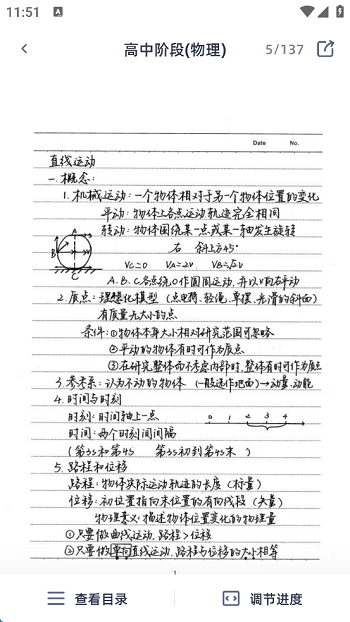 11:51
A
高中阶段(物理)
5/137
Date No.
直线运动
一.概念:
1.机械运动:一个物体相对于另一个物体位置的变化
平动:物体上各点运动轨迹完全相同
转动:物体围绕某一点或某一轴发生旋转
右 斜上方45°
A
B
C
Vc=0 VA=2V VB=√2V
A.B.C各点绕O作圆周运动,并以V向右平动
2.质点:理想化模型(点电荷、轻绳、单摆、光滑的斜面)
有质量无大小的点
条件:①物体本身大小相对研究范围可忽略
②平动的物体有时可作为质点
③在研究整体而不考虑内部时,整体有时可作为质点
3.参考系:认为不动的物体(一般选作地面)→动量、动能
4.时间与时刻
时刻:时间轴上一点
0 1 2 3 4
时间:两个时刻间间隔
(第3s和第4s 第3s初到第4s末)
5.路程和位移
路程:物体实际运动轨迹的长度(标量)
位移:初位置指向末位置的有向线段(矢量)
物理意义:描述物体位置变化的物理量
①只要做曲线运动,路程>位移
②只要做单向直线运动,路程与位移的大小相等
1
查看目录
调节进度